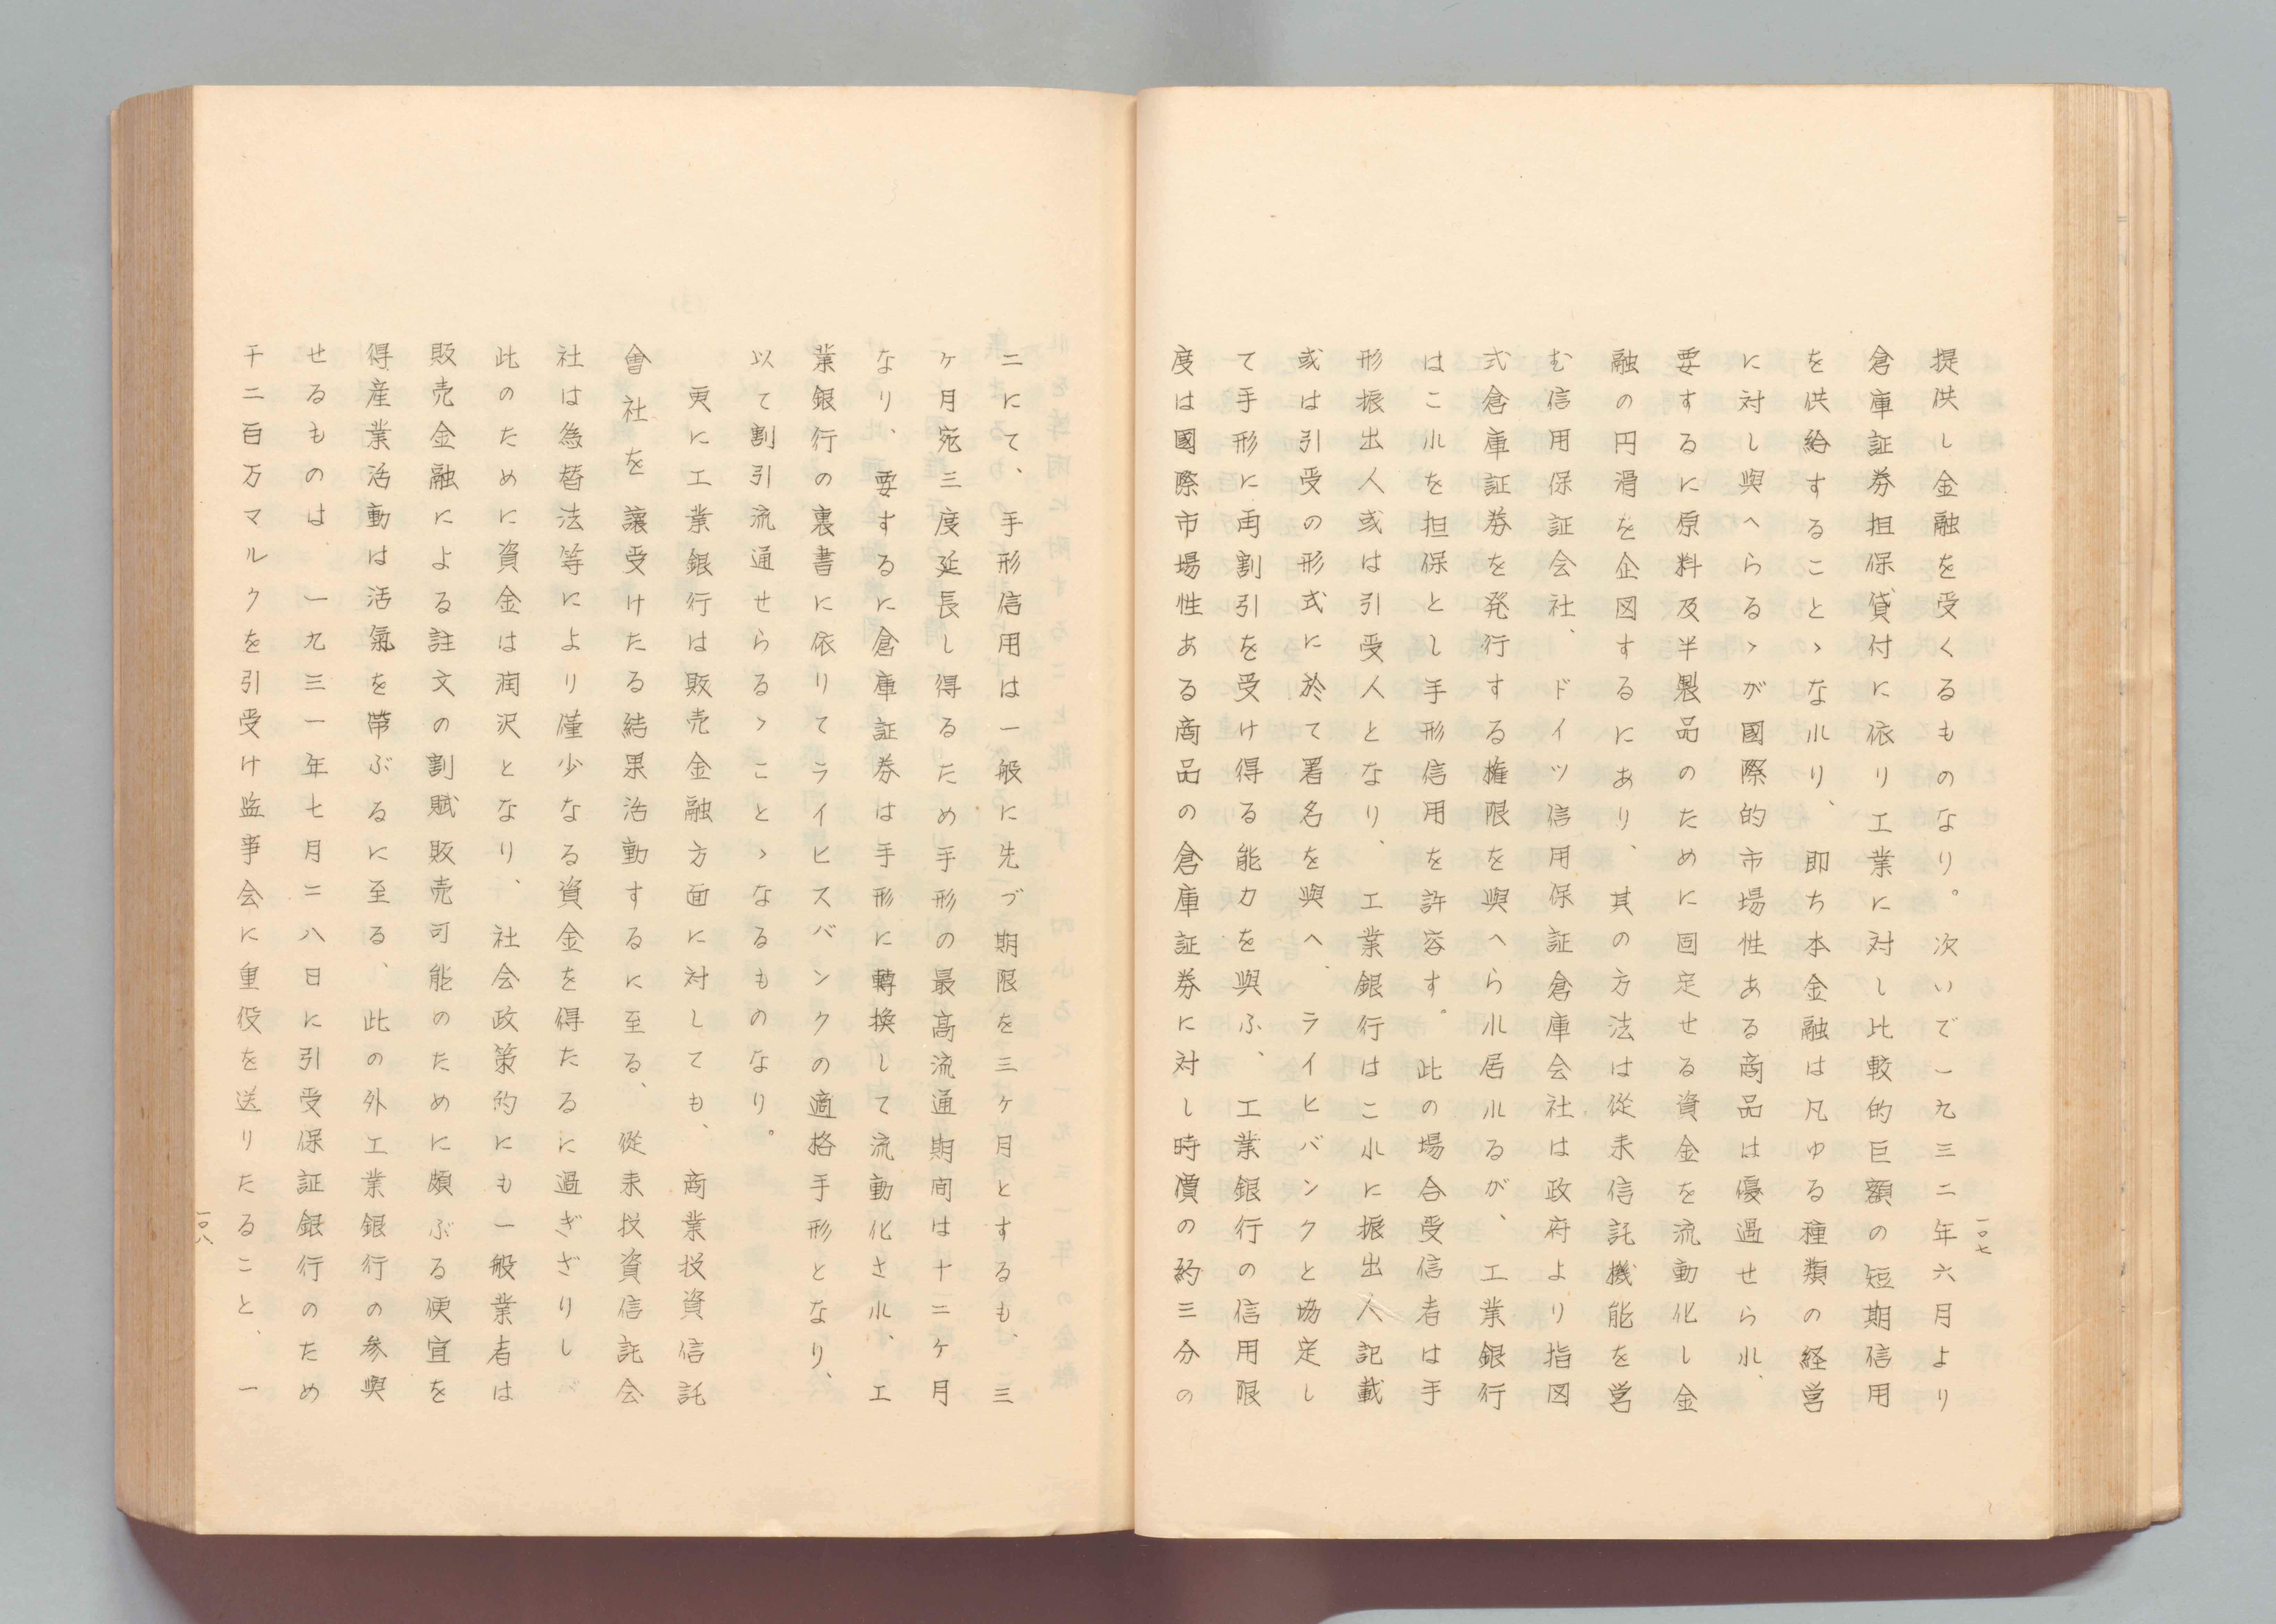 一〇七
提供し金融を受くるものなり。次いで一九三二年六月より
倉庫証券担保貸付に依り工業に対し比較的巨額の短期信用
を供給することゝなれり、即ち本金融は凡ゆる種類の経営
に対し與へらるゝが國際的市場性ある商品は優過せられ、
要するに原料及半製品のために固定せる資金を流動化し金
融の円滑を企図するにあり、其の方法は従来信託機能を営
む信用保証会社、ドイツ信用保証倉庫会社は政府より指図
式倉庫証券を発行する権限を與へられ居れるが、工業銀行
はこれを担保とし手形信用を許容す。此の場合受信者は手
形振出人或は引受人となり、工業銀行はこれに振出人記載
或は引受の形式に於て署名を與へ、ライヒバンクと協定し
て手形に再割引を受け得る能力を與ふ、工業銀行の信用限
度は國際市場性ある商品の倉庫証券に対し時價の約三分の
二にて、手形信用は一般に先づ期限を三ヶ月とするも、三
ヶ月宛三度延長し得るため手形の最高流通期间は十二ヶ月
なり、要するに倉庫証券は手形に轉換して流動化され、工
業銀行の裏書に依りてライヒスバンクの適格手形となり、
以て割引流通せらるゝことゝなるものなり。
更に工業銀行は販売金融方面に対しても、商業投資信託
會社を讓受けたる結果活動するに至る、從来投資信託会
社は為替法等により僅少なる資金を得たるに過ぎざりし
此のために資金は潤沢となり、社会政策的にも一般業者は
販売金融による註文の割賦販売可能のために頗ぶる便宜を
得産業活動は活氣を帶ぶるに至る、此の外工業銀行の参與
せるものは、一九三一年七月二八日に引受保証銀行のため
千二百万マルクを引受け監事会に重役を送りたること、一
一〇八